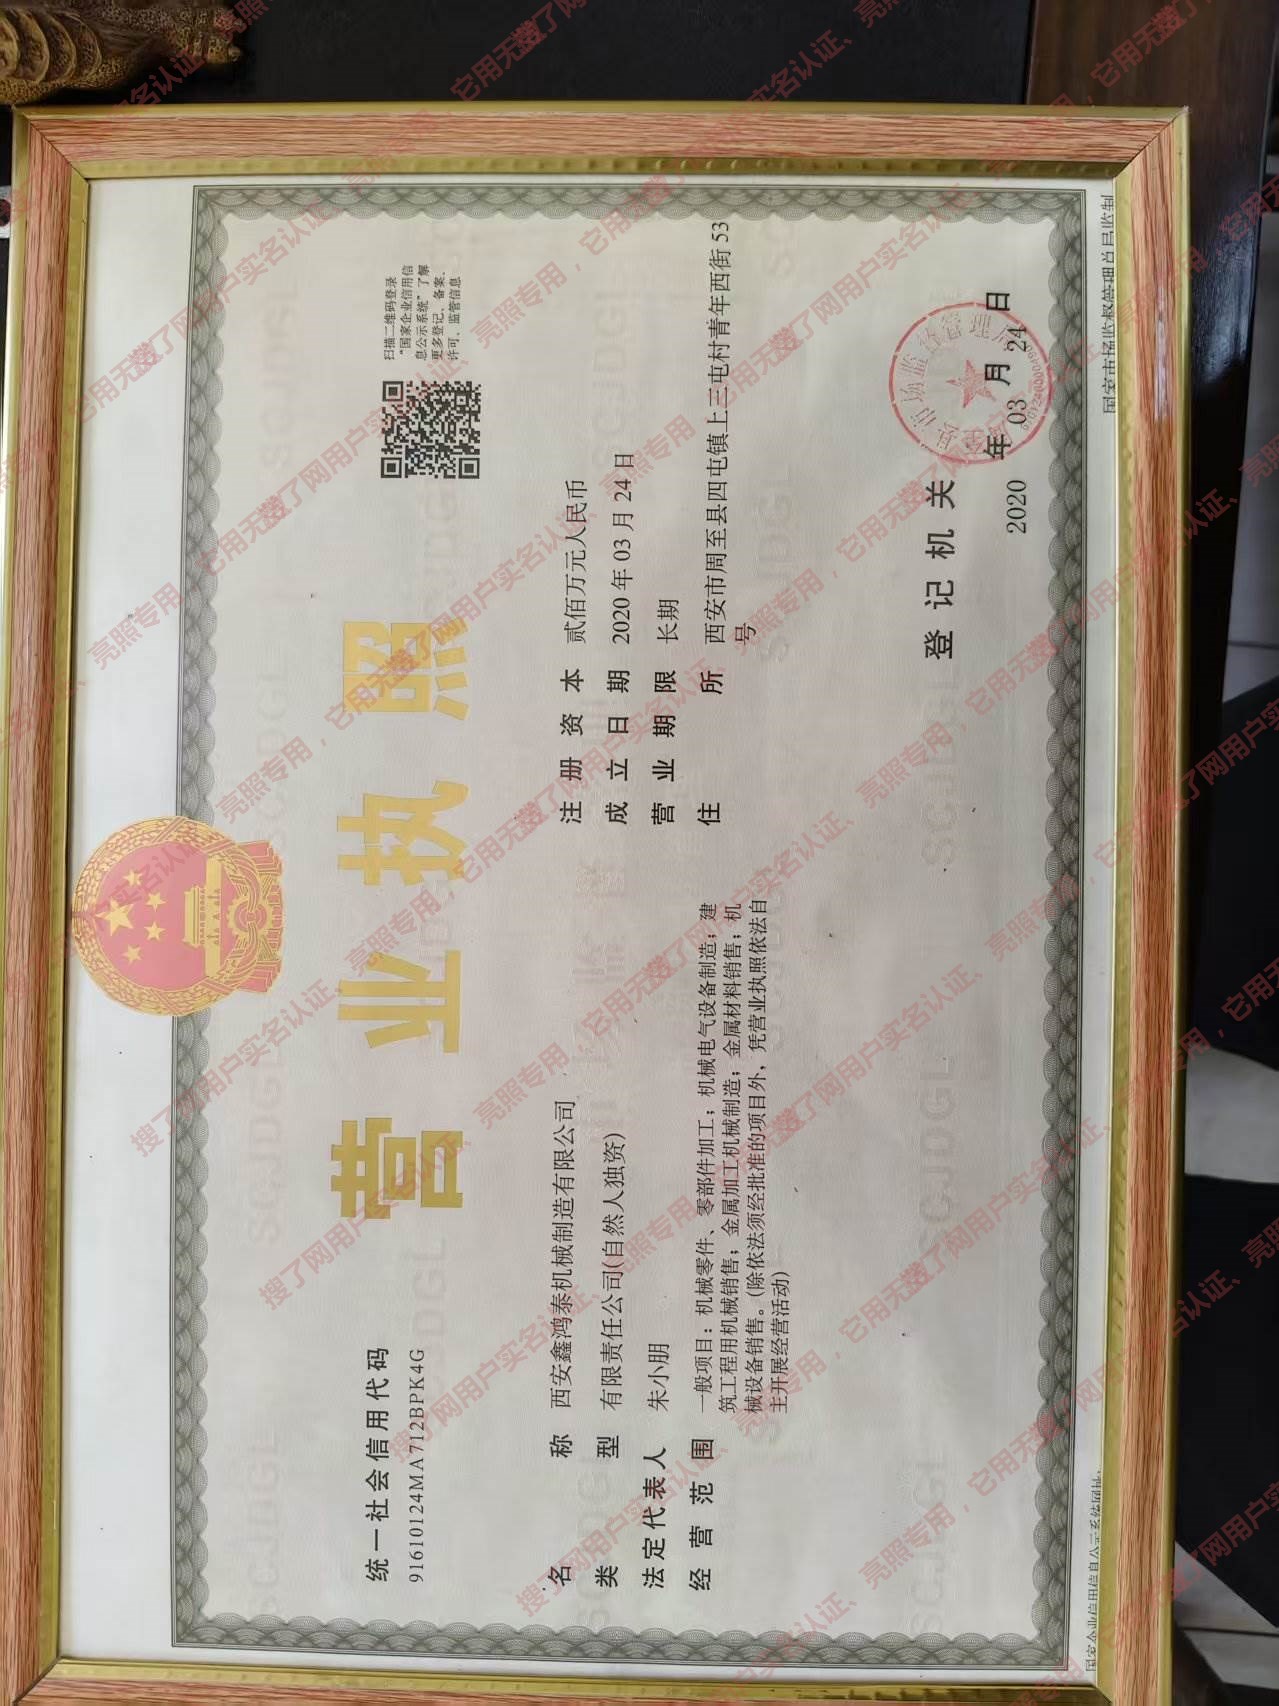 统一社会信用代码
91610124MA712BPK4G
营业执照
扫描二维码登录
“国家企业信用信
息公示系统”了解
更多登记、备案、
许可、监管信息
名称 西安鑫鸿泰机械制造有限公司
类型 有限责任公司(自然人独资)
法定代表人 朱小朋
经营范围 一般项目：机械零件、零部件加工；机械电气设备制造；建
筑工程用机械销售；金属加工机械制造；金属材料销售；机
械设备销售。(除依法须经批准的项目外，凭营业执照依法自
主开展经营活动)
注册资本 贰佰万元人民币
成立日期 2020年03月24日
营业期限 长期
住所 西安市周至县四屯镇上三屯村青年西街53
号
登记机关
2020年03月24日
国家企业信用信息公示系统网址:
国家市场监督管理总局监制
搜了网用户实名认证、亮照专用，它用无效